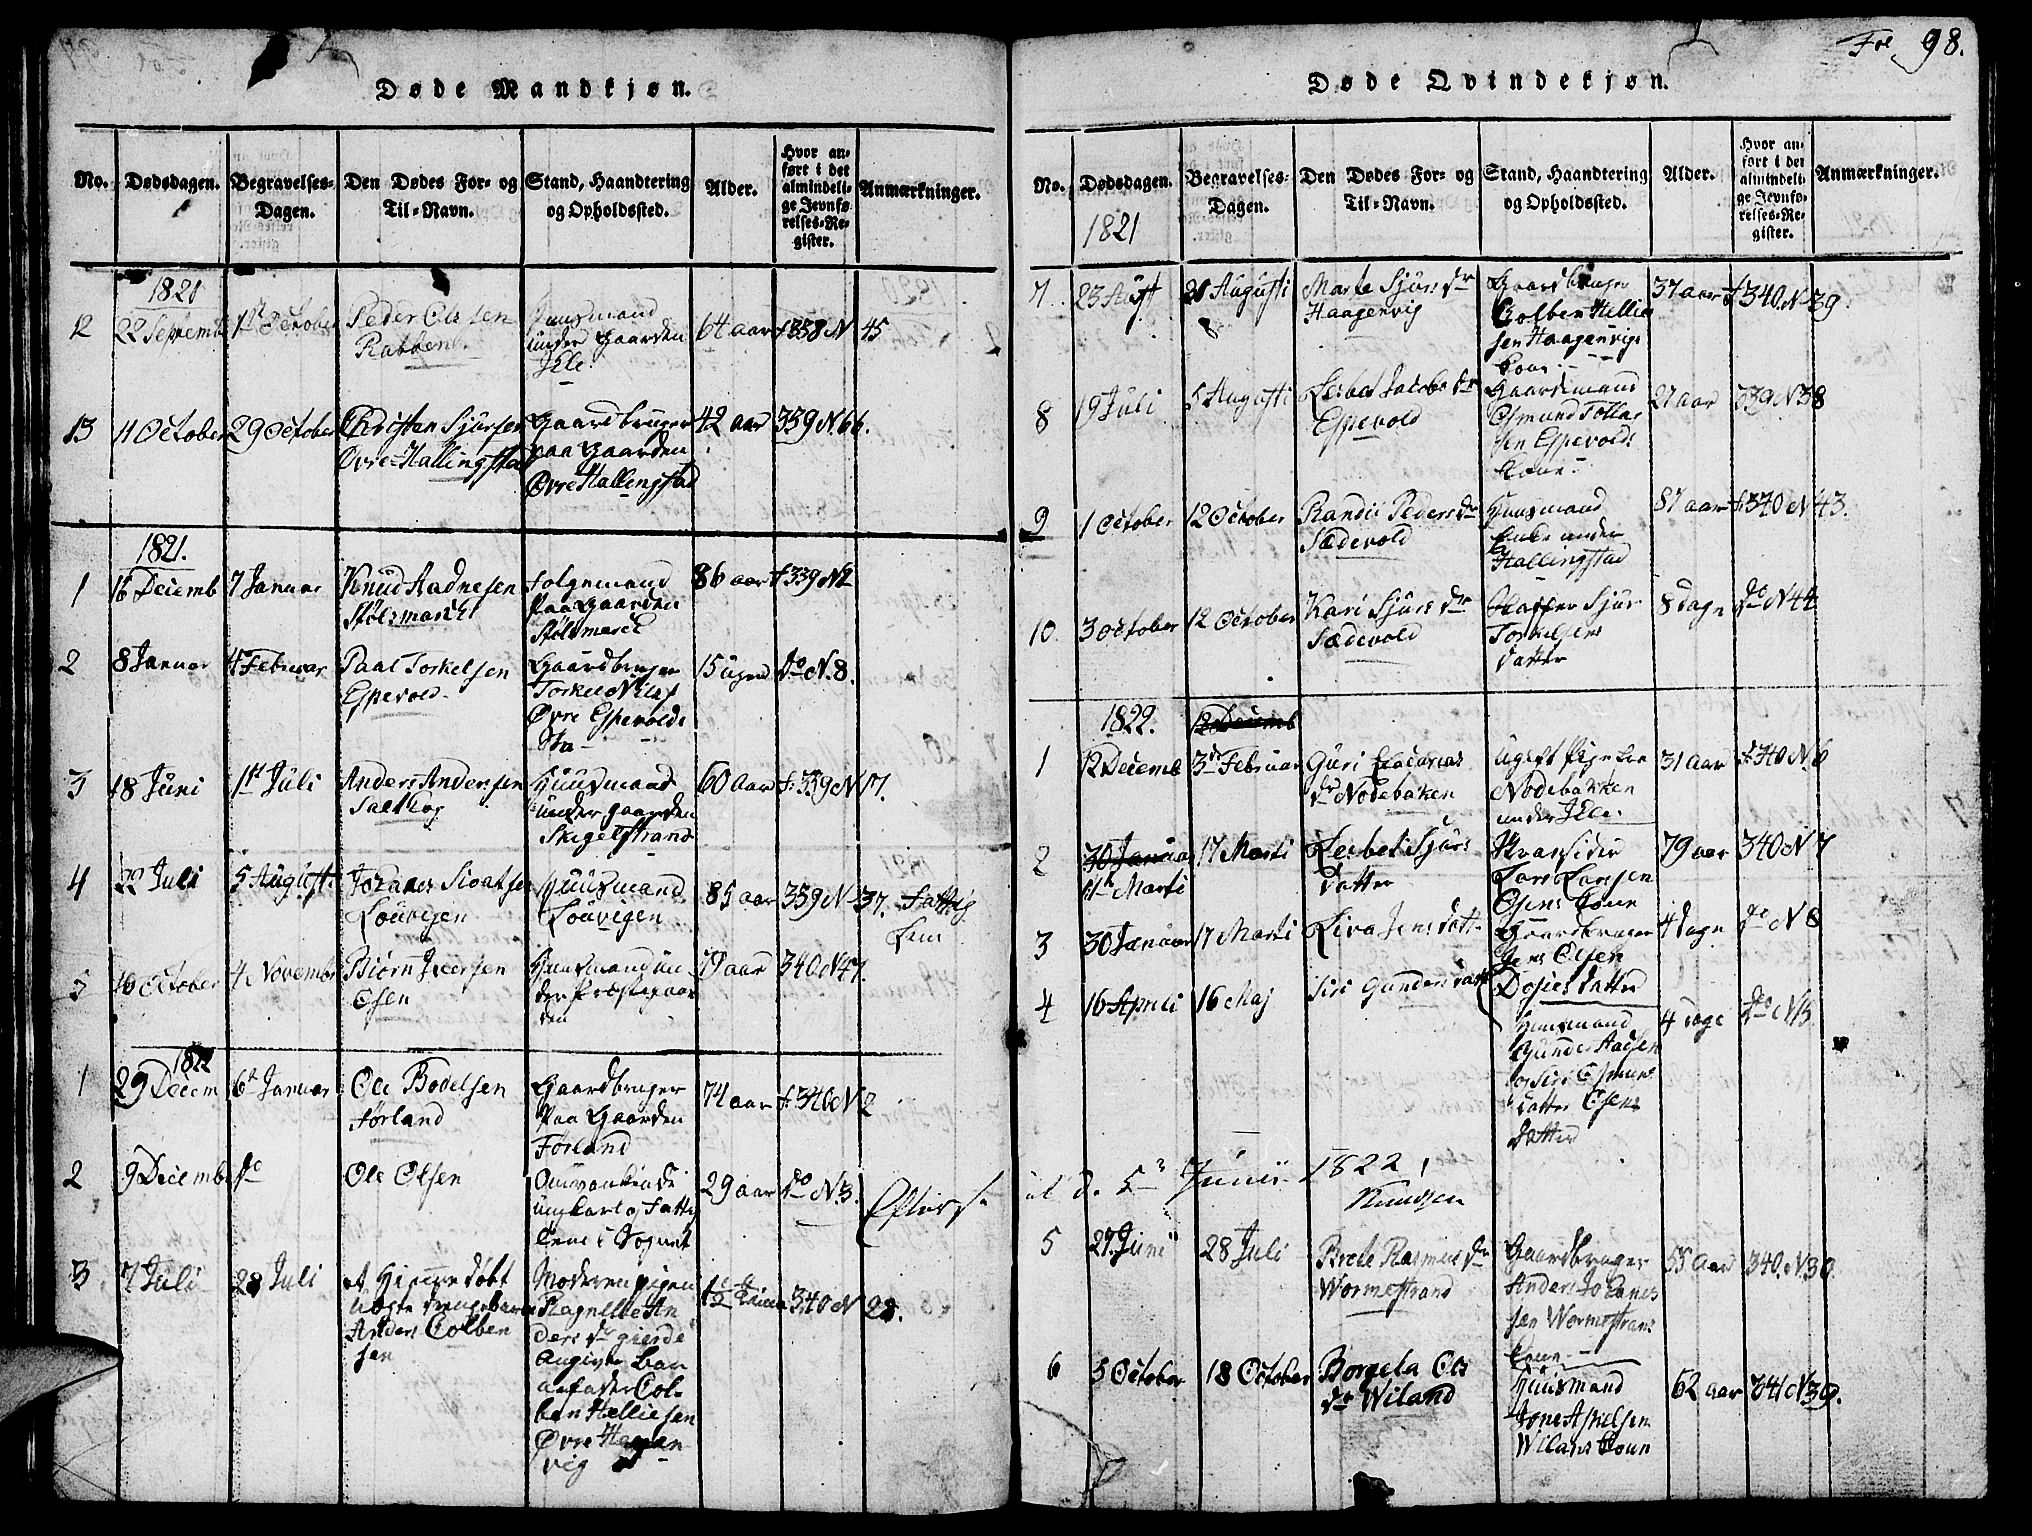 Døde Mandkjøn.
No.
Dødsdagen.
Begravelses-
Dagen.
Den Dødes For- og
Til-Navn.
Stand, Haandtering
og Opholdssted.
Alder.
Hvor an-
ført i det
almindeli-
ge Jevnfø-
relses-Re-
gister.
Anmærkninger.
12
22 Septemb
1st October
Peder Olssen
Huusmand
under Gaarden
64 aar
f 338 N 45
13
11 October
29 October
Christen Sjursen
Øvre Hallingstad
Gaardbruger
paa Gaarden
Øvre Hallingstad
42 aar
339 N. 66.
1821.
1
16 Decemb
7 Januar
Knud Aadnesen
Stølsmarck
Folgemand
Paa Gaarden
Stølsmarck
86 aar
f 339 N 2
2
8 Januar
4 Februar
Paal Torkelsen
Espevold
Gaardbruger
Torkel Nils
Øvre Espevolds
15 ugen
do N. 8.
3
18 Juni
1st Juli
Anders Andersen
Huusmand
under gaarden
Skigelstrand
60 aar
f. 339 N 17.
4
22 Juli
5 August
Johanes
Louvigen
Huusmand
Louvigen
85 aar
339 N 37.
Fattig
Lem
5
16 October
4 Novembr
Biørn Iversen
Olsen
Huusmand un-
der Præstegaar
den
79 aar
340 N 47.
1822
1
29 Decem
6 Januar
Ole Bodelsen
Førland
Gaardbruger
Paa Gaarden
Førland
74 aar
f. 340 N 2
2
9 Decemb
do
Ole Olsen
Omvankende
ungkarl og Fattig
Lem i Sognet
29 aar
do N. 3.
Efters.
3
7 Juli
28 Juli
et Hiemme døbt
uægte drengebarn
Anders Colben
sen
Moderen pigen
Ragnelle An
ders dr gierde
angiven Bar
nefader Col-
ben Helliesen
Øvre Haagen
vig
340 N 28.
Fol 98.
Døde Qvindekjøn.
No.
Dødsdagen.
1821
Begravelses-
Dagen.
Den Dødes For- og
Til-Navn.
Stand, Haandtering
og Opholdssted.
Alder.
Hvor an-
ført i det
almindeli-
ge Jevnfø-
relses-Re-
gister.
Anmærkninger.
7
23 Augst
Augusti
Marte Sjurs dr
Haagenvig
Gaardbruger
Colben Hellie
sen Haagenvigs
Kone
37 aar
f 340. N 39.
8
19 Juli
5 Augusti
Lisbet Jacobs dr
Espevold
Gaardmand
Osmund Tollag
sen Espevolds
Kone
27 aar
339 N 38
9
1 October
12 October
Randi Peders dr
Sædevold
Huusmand
Enke under
Hallingstad
87 aar
f. 340 N 43.
10.
3 October
12 October
Kari Sjurs dr
Sædevold
Sjur
Torkelsens
datter
8 dage
do N 44
1822.
12 Decemb
1
12 Decemb
3de Februar
Guri
dr Nodebaken
ugift Pige fra
Nodebakken
under
31 aar
f. 340 N. 6
2
30 Januar
11te Marti
17 Marti
Lisbet Sjurs
datter
Stransider
Lars Larsen
Osens Kone
79 aar
340 N 7
3
30 Januar
17 Marti
Liva Jens datt
Gaardbruger
Jens Olsen
datter
4 dage
do N 8
4
16 Aprili
16 Maj
Siri Gunders datt
Huusmand
Gunder Aadsen
og Siri Osmuns
datter Osens
datter
4 dage
do N 13.
d. 5te Junii 1822,
Knudsen
5
27 Junii
28 Juli
Brete Rasmus dr
Wormestrand
Gaardbruger
Anders Johanes
sen Wormestrans
Kone
55 aar
340. N. 30.
6
5 October
18 October
Borgela Ols
dr Wiland
Huusmand
Jone Aslesen
Wilans Kone
62 aar
341 N 39.